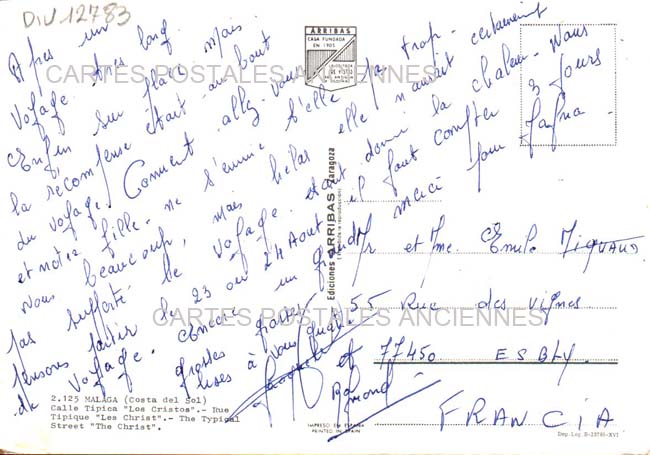 DIV 12783
Après un
voyage très long mais
enfin sur place au bout
la récompense était au bout
du voyage. Comment allez-vous
et notre fille ne s'ennuie t'elle pas trop. certainement
vous beaucoup, mais hélas elle n'aurait
pas supporté le voyage étant donné la chaleur. Nous
pensons partir le 23 ou 24 Août il faut compter 3 jours
de voyage. encore un grand merci pour
grosses bises à vous quatre
et
Raymond
ARRIBAS
CASA FUNDADA
EN 1905
Ediciones ARRIBAS Zaragoza
Mr et Mme Emile
55 Rue des vignes
77450 ESBLY.
FRANCIA
CARTES POSTALES ANCIENNES
CARTES POSTALES ANCIENNES
2.125 MALAGA (Costa del Sol)
Calle Tipica "Los Cristos".- Rue
Tipique "Les Christ".- The Typical
Street "The Christ".
IMPRESO EN ESPAÑA
PRINTED IN SPAIN